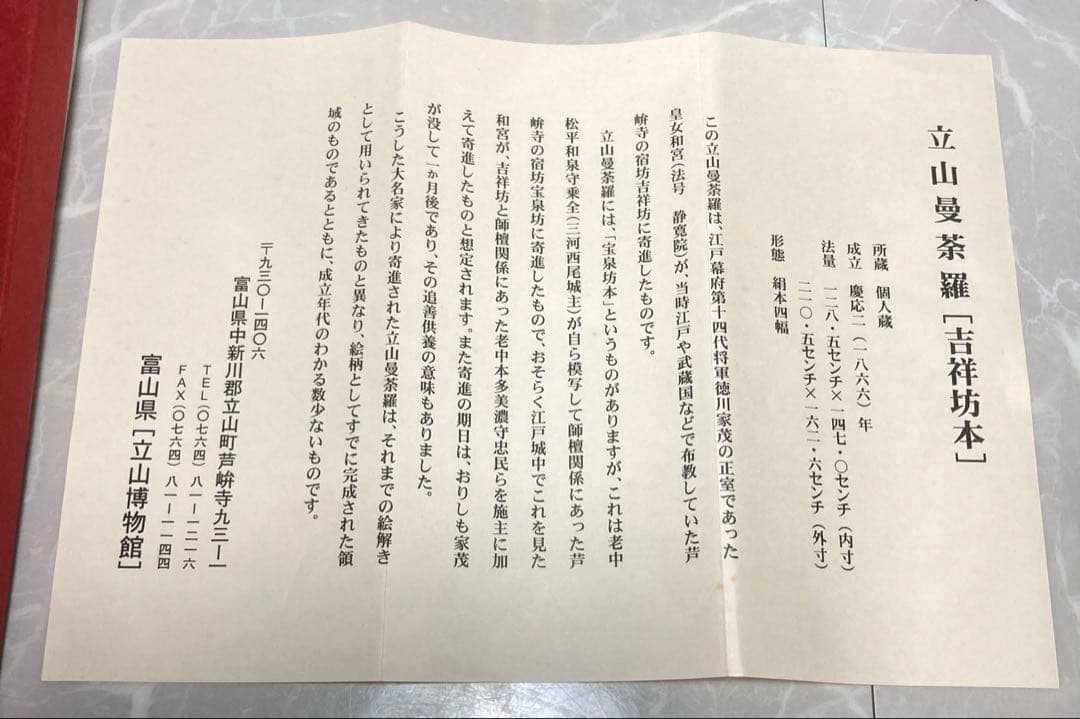 立山曼荼羅［吉祥坊本］
所蔵　個人蔵
成立　慶応二（一八六六）年
法量　一二八・五センチ×一四七・〇センチ（内寸）
二一〇・五センチ×一六二・六センチ（外寸）
形態　絹本四幅
この立山曼荼羅は、江戸幕府第十四代将軍徳川家茂の正室であった
皇女和宮（法号　静寛院）が、当時江戸や武蔵国などで布教していた芦
峅寺の宿坊吉祥坊に寄進したものです。
立山曼荼羅には、「宝泉坊本」というものがありますが、これは老中
松平和泉守乗全（三河西尾城主）が自ら模写して師檀関係にあった芦
峅寺の宿坊宝泉坊に寄進したもので、おそらく江戸城中でこれを見た
和宮が、吉祥坊と師檀関係にあった老中本多美濃守忠民らを施主に加
えて寄進したものと想定されます。また寄進の期日は、おりしも家茂
が没して一か月後であり、その追善供養の意味もありました。
こうした大名家により寄進された立山曼荼羅は、それまでの絵解き
として用いられてきたものと異なり、絵柄としてすでに完成された領
域のものであるとともに、成立年代のわかる数少ないものです。
〒九三〇―一四〇六
富山県中新川郡立山町芦峅寺九三―一
ＴＥＬ（〇七六四）八一―一二一六
ＦＡＸ（〇七六四）八一―一一四四
富山県［立山博物館］